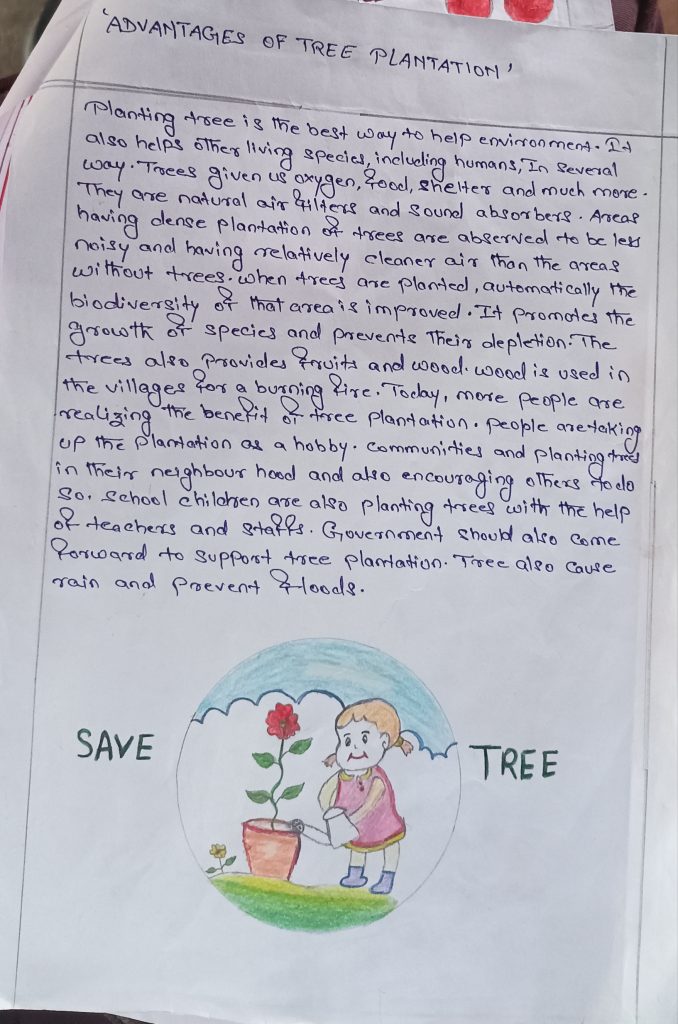 'ADVANTAGES OF TREE PLANTATION'
Planting tree is the best way to help environment. It
also helps other living species, including humans, In several
way. Trees given us oxygen, food, shelter and much more.
They are natural air filters and sound absorbers. Areas
having dense plantation of trees are observed to be less
noisy and having relatively cleaner air than the areas
without trees. when trees are planted, automatically the
biodiversity of that area is improved. It promotes the
growth of species and prevents Their depletion. The
trees also provides fruits and wood. wood is used in
the villages for a burning fire. Today, more people are
realizing the benefit of tree plantation. people are taking
up the plantation as a hobby. communities and planting trees
in their neighbour hood and also encouraging others to do
so. school children are also planting trees with the help
of teachers and staffs. Government should also come
forward to support tree plantation. Tree also cause
rain and prevent floods.
SAVE TREE